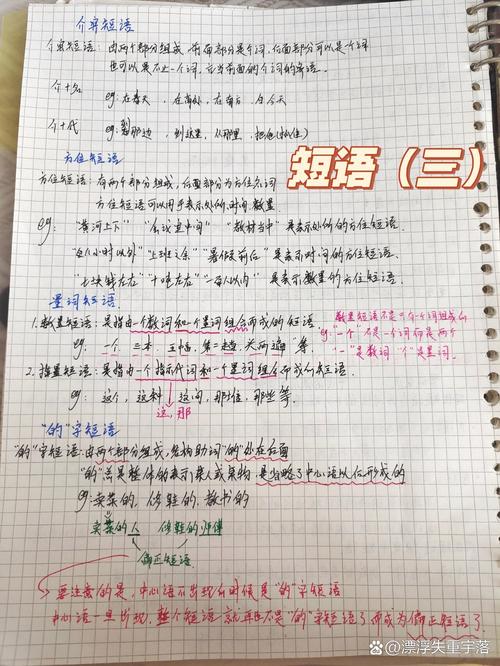 介宾短语
介宾短语：由两个部分组成，前面部分是介词，后面部分可以是一个词
也可以是不止一个词，充当前面的介词的宾语。
介+名 eg：在春天，在高处，在南方，自今天
介+代 eg：到那边，到这里，从那里，把他(抓住)
方位短语
短语（三）
方位短语：有两个部分组成，后面部分为方位名词
方位短语可以用于表示处所、时间、数量
eg： "黄河上下" "会议室中间" "教材当中" 是表示处所的方位短语
"八小时以外" "上班之余" "暑假前后" 是表示时间的方位短语.
"七块钱左右" "十吨左右" "一百人以内" 是表示数量的方位短语.
量词短语
1.数量短语：是指由一个数词和一个量词组合而成的短语.
eg：一个 三本 第二 两遍 等.
数量短语不是一个词组成的
eg "一个"不是一个词而是两个
"一"是数词 "个"是量词.
2.指量短语：是指由一个指示代词和一个量词组合而成的短语.
eg：这个，这种 这间，那位，那些等.
这，那
"的"字短语
"的"字短语：由两个部分组成，结构助词"的"处在后面
"的"总是整体的表示某人或某物，是省略了中心语以后形成的
eg：卖菜的，修鞋的，教书的
卖菜的人 修鞋的师傅
偏正短语
要注意的是，中心语不出现的时候是"的"字短语
中心语一旦出现，整个短语就再也不是"的"字短语了而成为偏正短语了
@漂浮失重宇落